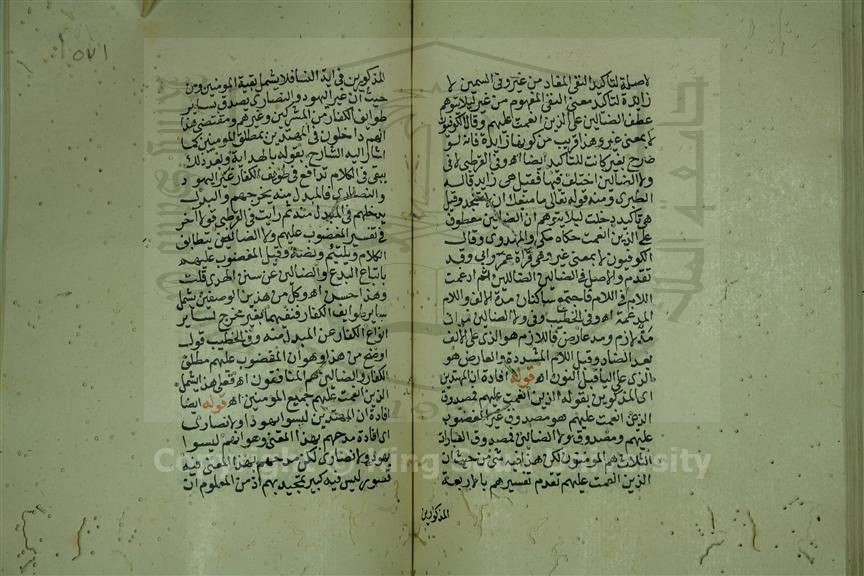 لاصلة لتاكيد النفي المفاد من غير وفي السمين لا
زائدة لتاكيد معنى النفي المفهوم من غير ليلا يتوهم
عطف الضالين على الذين انعمت عليهم وقال الكوفيون
لا بمعنى غير وهذا قريب من كونها زائدة فانه لو
صرح بغير كانت للتاكيد ايضا اهـ وفي القرطبي لا في
ولا الضالين اختلف فيها فقيل هي زايدة قاله
الطبري ومنه قوله تعالى ما منعك ان لا تسجد وقيل
هي تاكيد دخلت ليلا يتوهم ان الضالين معطوف
على الذين انعمت حكاه مكي والمهدوي وقال
الكوفيون لا بمعنى غير وهي قراة عمر وابي وقد
تقدم والاصل في الضالين الضاللين ثم ادغمت
اللام في اللام فاجتمع ساكنان مدة الالف واللام
المدغمة اهـ وفي الخطيب وفي ولا الضالين مدان
مد لازم ومد عارض فاللازم هو الذي على الالف
بعد الضاد وقبل اللام المشددة والعارض هو
الذي على اليا قبل النون اهـ قوله افادة ان المهتدين
اي المذكورين بقوله الذين انعمت عليهم فمصدوق
الذين انعمت عليهم هو مصدوق غير المغضوب
عليهم ومصدوق ولا الضالين فمصدوق العبارات
الثلاث هم المومنون لكن هذا فيه شي من حيث ان
الذين انعمت عليهم تقدم تفسيرهم بالاربعة
المذكورين
١٥٧١
المذكورين في اية النسا فلا يشمل بقية المومنين ومن
حيث ان غير اليهود والنصارى يصدق بساير
طوايف الكفار من المشركين وغيرهم ومقتضى هذا
انهم داخلون في المهتدين بمطلق المومنين كما
اشار اليه الشارح بقوله بالهداية وبعد ذلك
يبقى في الكلام تدافع في طوايف الكفار غير اليهود
والنصارى فالمبدل منه يخرجهم والبدل
يدخلهم في المبدل منه ثم رايت في القرطبي قولا اخر
في تفسير المغضوب عليهم ولا الضالين يتطابق
الكلام ويلتئم ونصه وقيل المغضوب عليهم
باتباع البدع والضالين عن سنن الهدى قلت
وهذا حسن اهـ وكل من هذين الوصفين يشمل
ساير طوايف الكفار فنفيهما بغير مخرج لساير
انواع الكفار عن المبدل منه وفي الخطيب قول
اوضح من هذا وهو ان المغضوب عليهم مطلق
الكفار والضالين هم المنافقون اهـ فعلى هذا يشمل
الذين انعمت عليهم جميع المومنين اهـ قوله ايضا
افادة ان المهتدين ليسوا يهودا ولا نصارى
اي افادة مدحهم بهذا المعنى وهو انهم ليسوا
يهود ولا نصارى لكن مدحهم بهذا المعنى فيه
قصور ليس فيه كبير تمجيد بهم اذ من المعلوم ان
Copyright © King Saud University